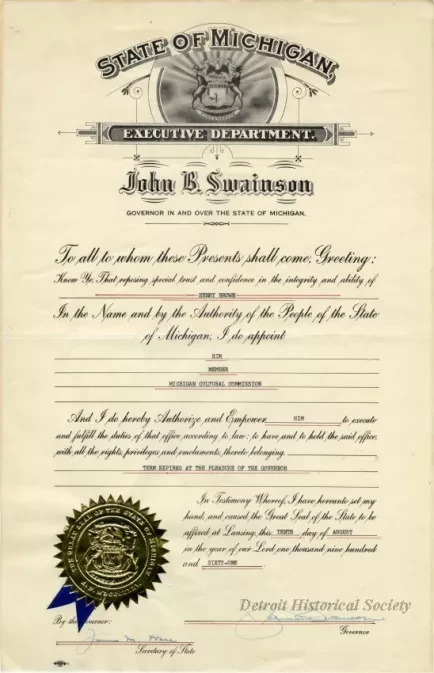 STATE OF MICHIGAN,
EXECUTIVE DEPARTMENT.
John B. Swainson
GOVERNOR IN AND OVER THE STATE OF MICHIGAN.
To all to whom these Presents shall come, Greeting:
Know Ye, That reposing special trust and confidence in the integrity and ability of
HENRY BROWN
In the Name and by the Authority of the People of the State
of Michigan, I do appoint
HIM
MEMBER
MICHIGAN CULTURAL COMMISSION
And I do hereby Authorize and Empower HIM to execute
and fulfill the duties of that office according to law; to have and to hold the said office,
with all the rights, privileges and emoluments, thereto belonging.
TERM EXPIRES AT THE PLEASURE OF THE GOVERNOR
In Testimony Whereof, I have hereunto set my
hand, and caused the Great Seal of the State to be
affixed at Lansing, this TENTH day of AUGUST
in the year of our Lord one thousand nine hundred
and SIXTY-ONE
Detroit Historical Society
By the Governor:
Governor
James M. Hare
Secretary of State